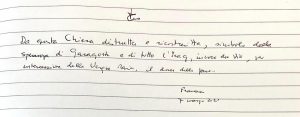 Da questa Chiesa distrutta e ricostruita, simbolo della
speranza di Qaraqosh e di tutto l'Iraq, invoco da Dio, per
intercessione della Vergine Maria, il dono della pace.
Franciscus
7 marzo 2021